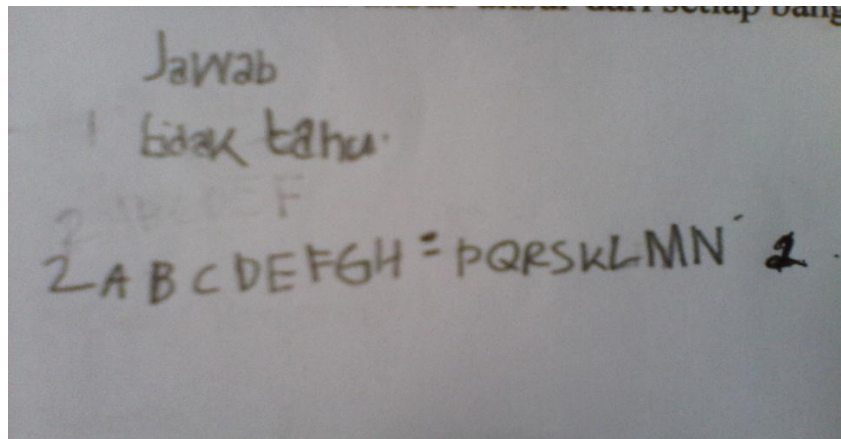 dari setiap bang
Jawab
1 tidak tahu.
2 ABCDEF
2 A B C D E F G H = P Q R S K L M N 2.